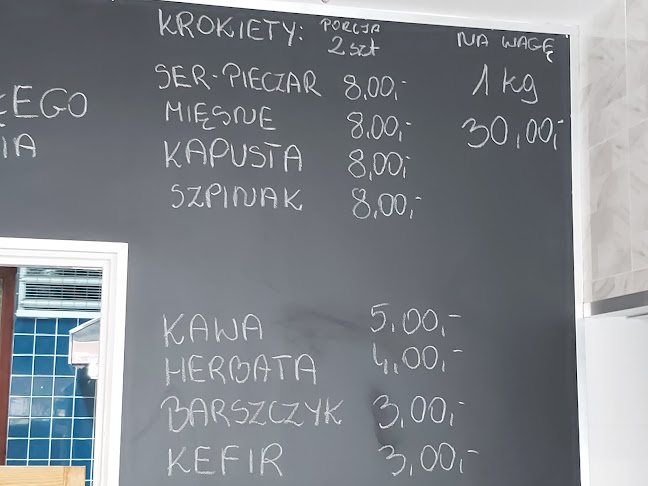 KROKIETY: PORCJA 2 szt
NA WAGĘ
SER-PIECZAR 8,00,-
1 kg
MIĘSNE 8,00,-
30,00,-
KAPUSTA 8,00,-
SZPINAK 8,00,-
KAWA 5,00,-
HERBATA 4,00,-
BARSZCZYK 3,00,-
KEFIR 3,00,-